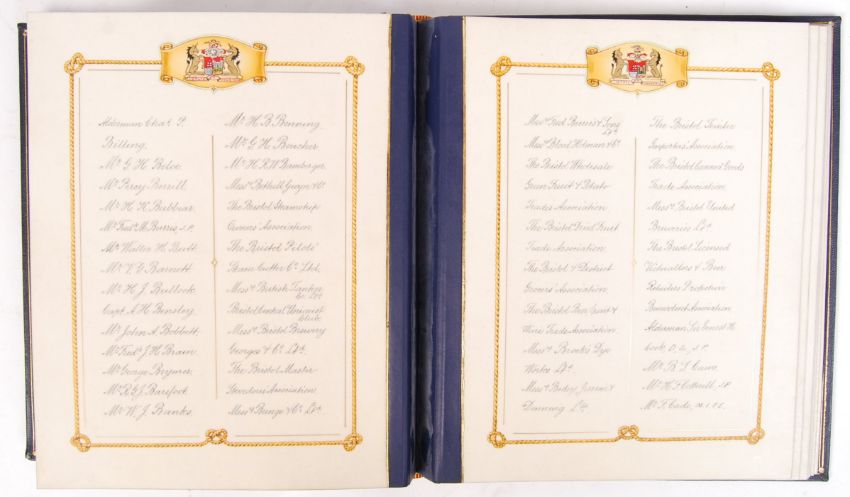 Alderman Chas. P.
Billing.
Mr G. H. Beloe
Mr Percy Berrill
Mr H. H.
Mr Fredk. M. Burris, J.P.
Mr Walter H. Butt
Mr V. G. Barnett
Mr H. J. Bullock
Capt. A. H. Bensley
Mr John A. Bobbett
Mr Fredk. J. H. Brain
Mr George Brymer
Mr R. G. J. Barefoot
Mr W. J. Banks
Mr H. B. Benning
Mr G. H. Barker
Mr H. R. W. Bamberger
Messrs Bethell, Gwyn & Co.
The Bristol Steamship
Owners' Association
The Bristol Pilots'
Steam Cutter Co. Ltd.
Messrs British Tanker
Co. Ltd
Bristol Central Unionist
Club
Messrs Bristol Brewery
Georges & Co. Ltd.
The Bristol Master
Association
Messrs Bunge & Co. Ltd.
Messrs Fred Burris & Sons
Ltd.
Messrs & Co.
The Bristol Wholesale
Green Fruit & Potato
Trades Association
The Bristol Dried Fruit
Trade Association
The Bristol & District
Grocers' Association.
The Bristol Beer, Spirit &
Wine Trade Association
Messrs Brooks Dye
Works Ltd
Messrs
Ltd.
The Bristol Timber
Importers' Association
The Bristol Canned Goods
Trade Association
Messrs Bristol United
Breweries Ltd.
The Bristol Licensed
Victuallers & Beer
Retailers Protection
Benevolent Association
Alderman Sir Ernest H.
Cook, D.Sc, J.P.
Mr B. S. Cave.
Mr H. F. Cotterell, J.P.
Mr F.